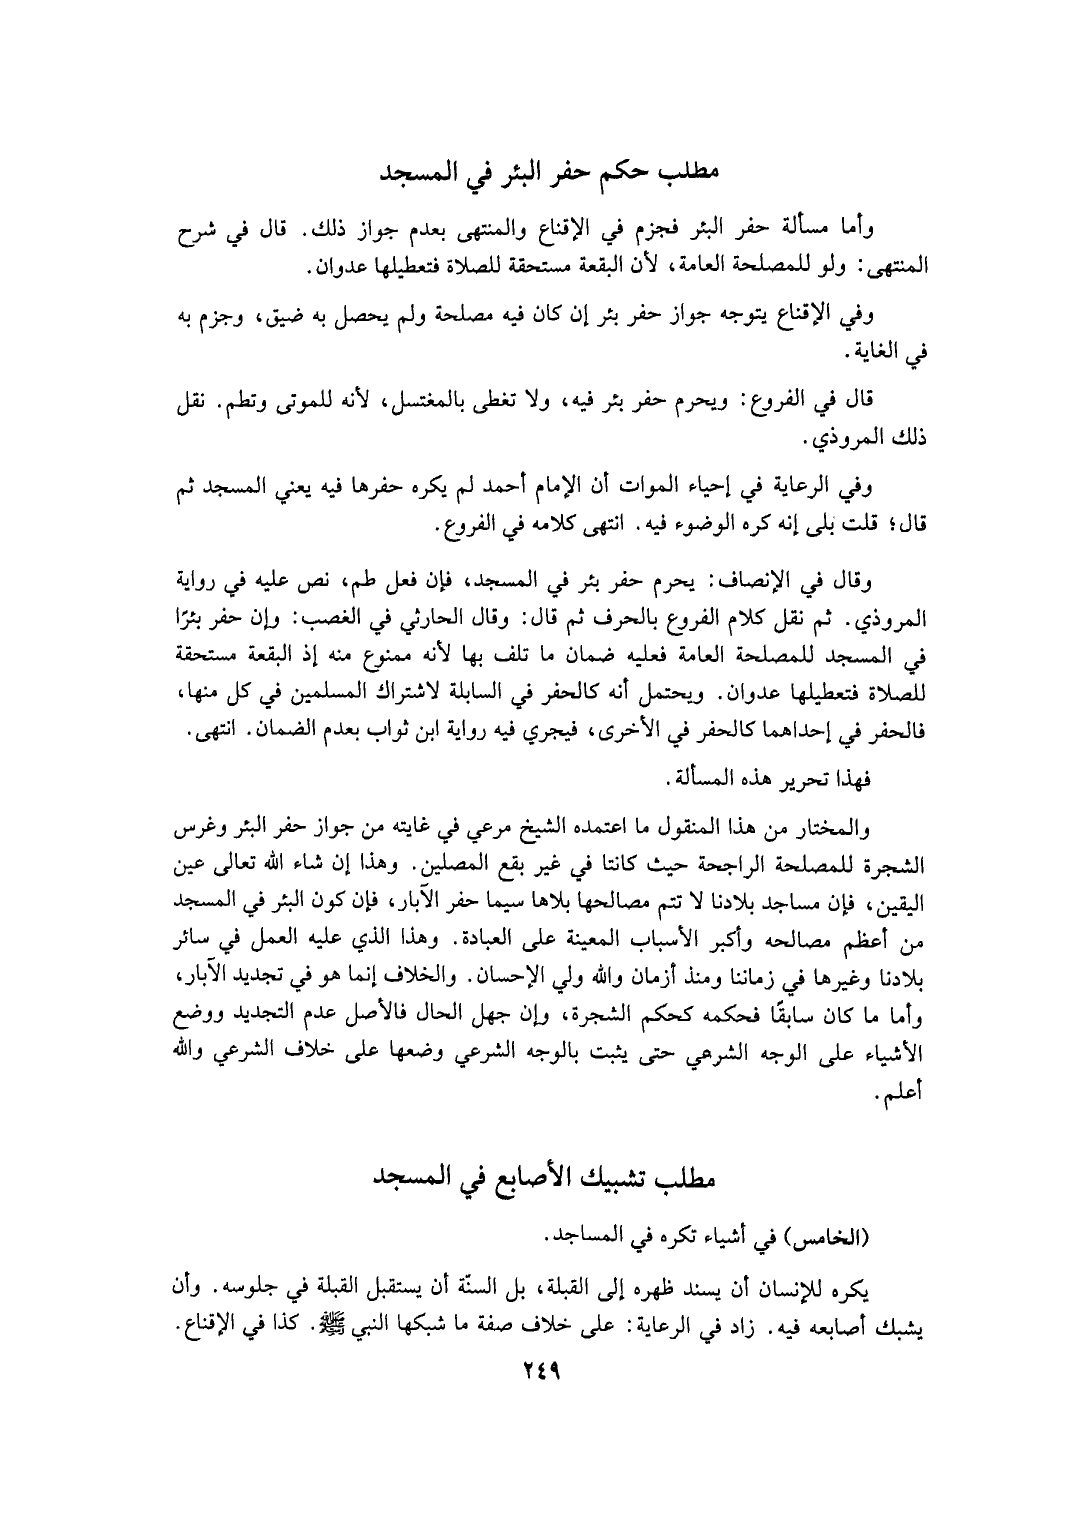 مطلب حكم حفر البئر في المسجد
وأما مسألة حفر البئر فجزم في الإقناع والمنتهى بعدم جواز ذلك. قال في شرح
المنتهى: ولو للمصلحة العامة، لأن البقعة مستحقة للصلاة فتعطيلها عدوان.
وفي الإقناع يتوجه جواز حفر بئر إن كان فيه مصلحة ولم يحصل به ضيق، وجزم به
في الغاية.
قال في الفروع: ويحرم حفر بئر فيه، ولا تغطى بالمغتسل، لأنه للموتى وتطم. نقل
ذلك المروذي.
وفي الرعاية في إحياء الموات أن الإمام أحمد لم يكره حفرها فيه يعني المسجد ثم
قال؛ قلت بلى إنه كره الوضوء فيه. انتهى كلامه في الفروع.
وقال في الإنصاف: يحرم حفر بئر في المسجد، فإن فعل طم، نص عليه في رواية
المروذي. ثم نقل كلام الفروع بالحرف ثم قال: وقال الحارثي في الغصب: وإن حفر بئرًا
في المسجد للمصلحة العامة فعليه ضمان ما تلف بها لأنه ممنوع منه إذ البقعة مستحقة
للصلاة فتعطيلها عدوان. ويحتمل أنه كالحفر في السابلة لاشتراك المسلمين في كل منها،
فالحفر في إحداهما كالحفر في الأخرى، فيجري فيه رواية ابن ثواب بعدم الضمان. انتهى.
فهذا تحرير هذه المسألة.
والمختار من هذا المنقول ما اعتمده الشيخ مرعي في غايته من جواز حفر البئر وغرس
الشجرة للمصلحة الراجحة حيث كانتا في غير بقع المصلين. وهذا إن شاء الله تعالى عين
اليقين، فإن مساجد بلادنا لا تتم مصالحها بلاها سيما حفر الآبار، فإن كون البئر في المسجد
من أعظم مصالحه وأكبر الأسباب المعينة على العبادة. وهذا الذي عليه العمل في سائر
بلادنا وغيرها في زماننا ومنذ أزمان والله ولي الإحسان. والخلاف إنما هو في تجديد الآبار،
وأما ما كان سابقًا فحكمه كحكم الشجرة، وإن جهل الحال فالأصل عدم التجديد ووضع
الأشياء على الوجه الشرعي حتى يثبت بالوجه الشرعي وضعها على خلاف الشرعي والله
أعلم.
مطلب تشبيك الأصابع في المسجد
(الخامس) في أشياء تكره في المساجد.
يكره للإنسان أن يسند ظهره إلى القبلة، بل السنّة أن يستقبل القبلة في جلوسه. وأن
يشبك أصابعه فيه. زاد في الرعاية: على خلاف صفة ما شبكها النبي ﷺ. كذا في الإقناع.
٢٤٩